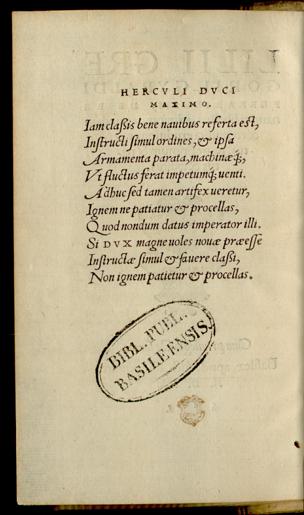 HERCVLI DVCI
MAXIMO.
Iam claſsis bene nauibus referta est,
Instructi simul ordines, & ipsa
Armamenta parata, machinæq́;,
Vt fluctus ferat impetumq́; uenti.
Adhuc sed tamen artifex ueretur,
Ignem ne patiatur & procellas,
Quod nondum datus imperator illi.
Si DVX magne uoles nouæ præeſſe
Instructæ simul & fauere claſsi,
Non ignem patietur & procellas.
BIBL. PUBL.
BASILEENSIS.